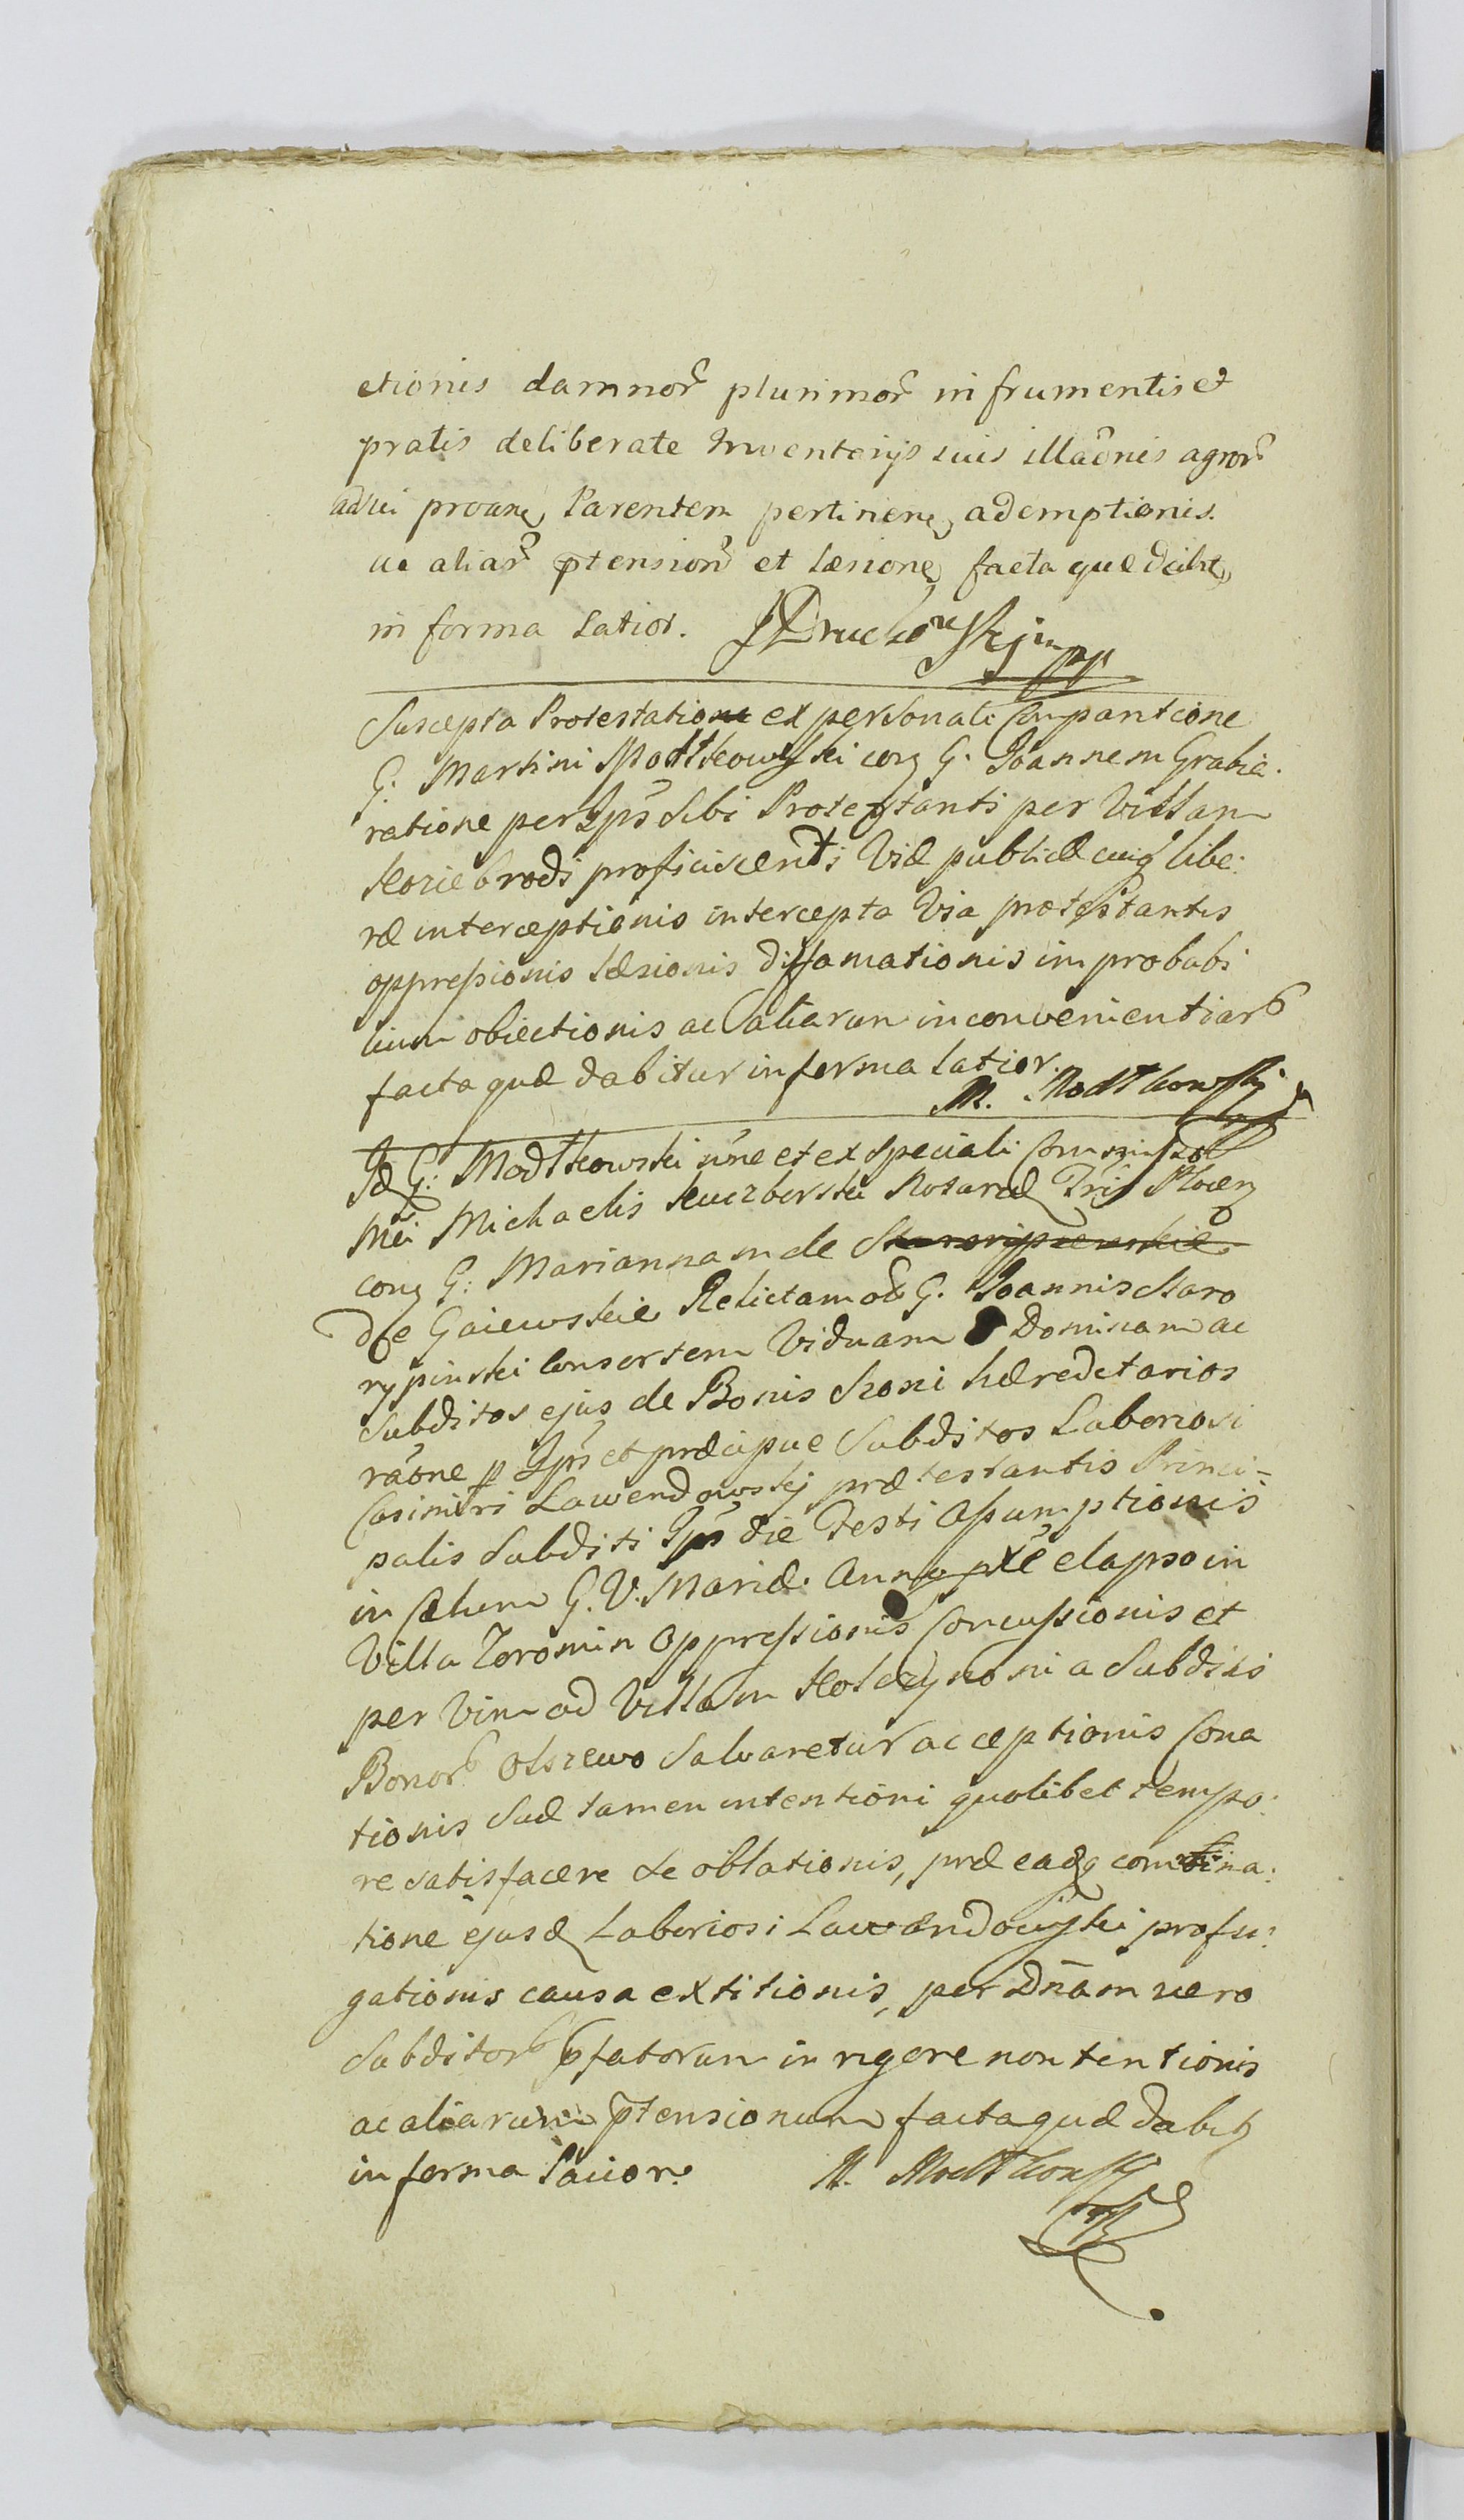 ctionis damnor plurimor in frumentis et
pratis deliberate Inventarijs suis illaonis agror
ad sui proane Parentem pertinene ademptionis.
ac aliar ptension et læsione facta que dabit
in forma Latior. JDruchowski mpp
Suscepta Protestatio ex personali Comparitione
G. Martini Modtkowski cong G. Joannem Grabia.
ratione per Ips Sibi Protestanti per Villam
Koziebrodi proficiscenti Viæ publicæ cuiq libe:
ræ interceptionis intercepta Via protestantis
oppressionis læsionis diffamationis improbabi
lium obiectionis ac aliarum inconvenientiar
facta quæ dabitur in forma latior.
M. Modtkowski mpp
Id G. Modtkowski nne et ex speciali Commisso
Mci Michaelis Kuczborski Notarii Tris Plocen
cong G: Mariannam de Starorypienskie
de Gaiewskie Relictam ol G. Joannis Staro
rypinski Consortem Viduam Dominam ac
Subditos ejus de Bonis Skoni hæreditarios
raone p Ips et præcipue Subditos Laboriosi
Casimiri Lawendowskij prætestantis Princi-
palis Subditi Ips die Festi Assumptionis
in Cælum G. V. Mariæ. Anno pxe elapso in
Villa Zoromin Oppressionis Concussionis et
per Vim ad Villam Kolczyn ni a Subditis
Bonor Olszewo Salvaretur acceptionis Cona
tionis Suæ tamen intentioni quolibet tempo:
re satisfacere se oblationis, præ eadq comina:
tione ejusd Laboriosi Lawendowski profu:
gationis causa extitionis, per Dnam vero
Subditor pfatorum in rigore non tentionis
ac aliarum ptensionum facta quæ dabit
in forma Latior. M. Modtkowski
mpp